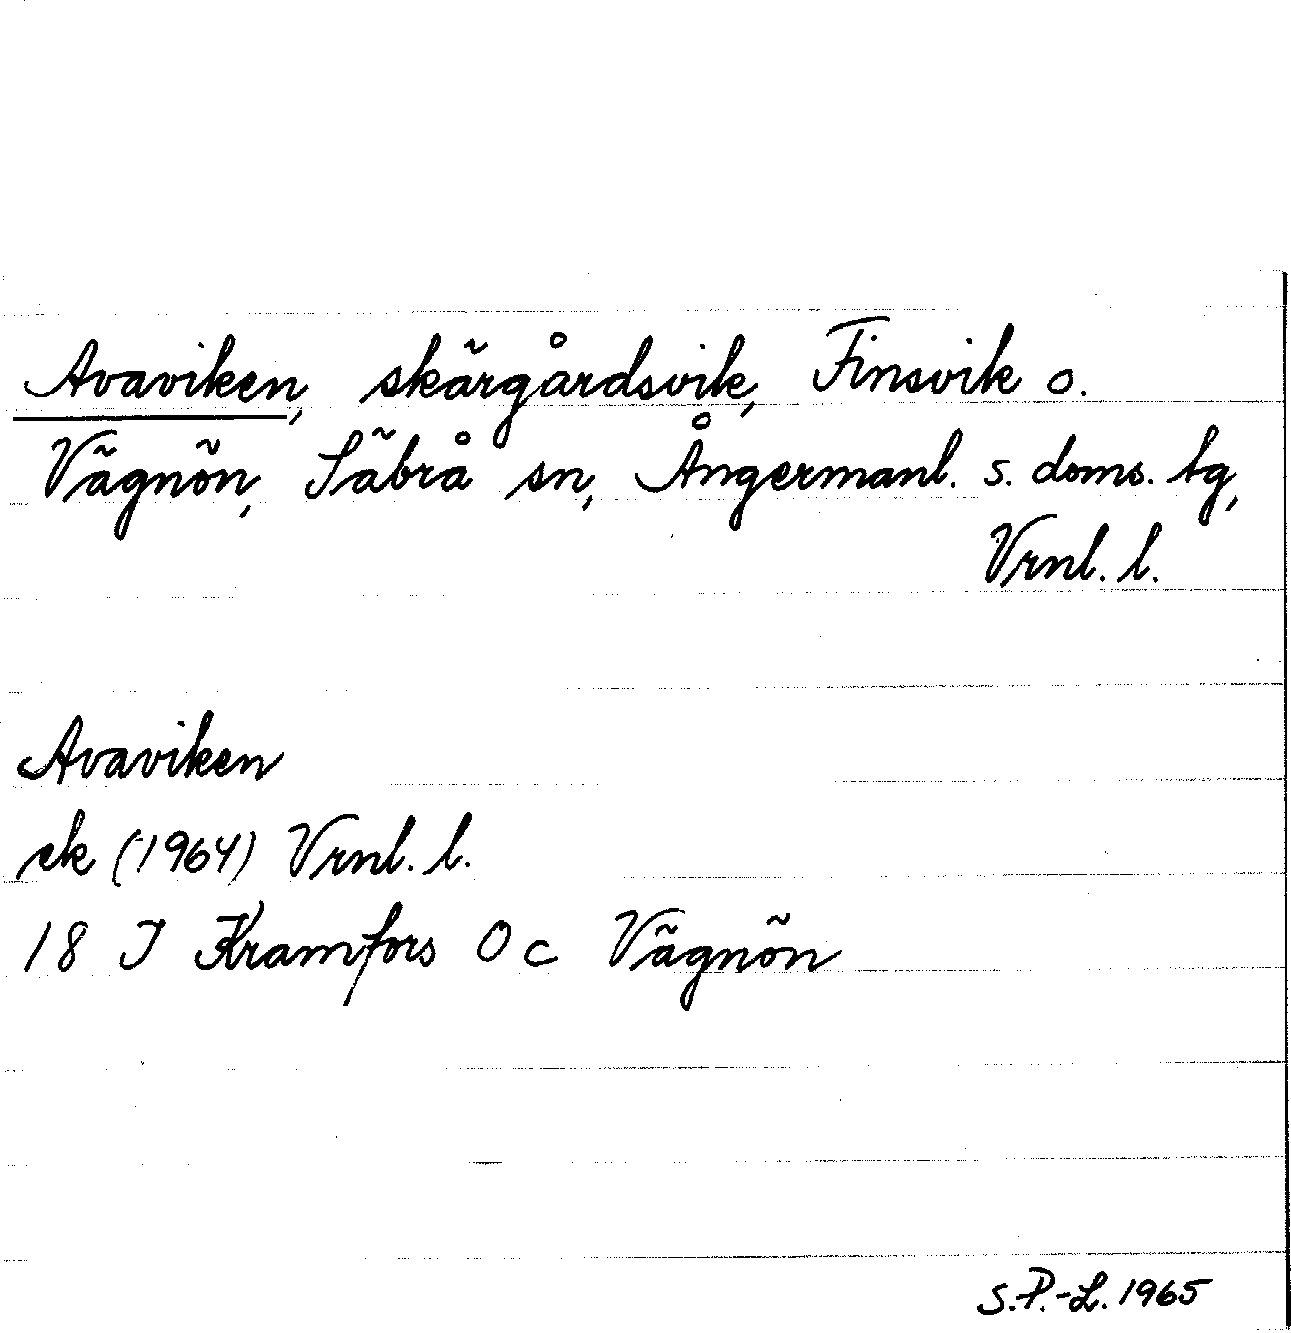 Avaviken, skärgårdsvik, Finsvik o.
Vägnön, Säbrå sn, Ångermanl. s. doms. tg,
Vrnl. l.
Avaviken
ek (1964) Vrnl. l.
18 I Kramfors 0 c Vägnön
S.P.-L. 1965